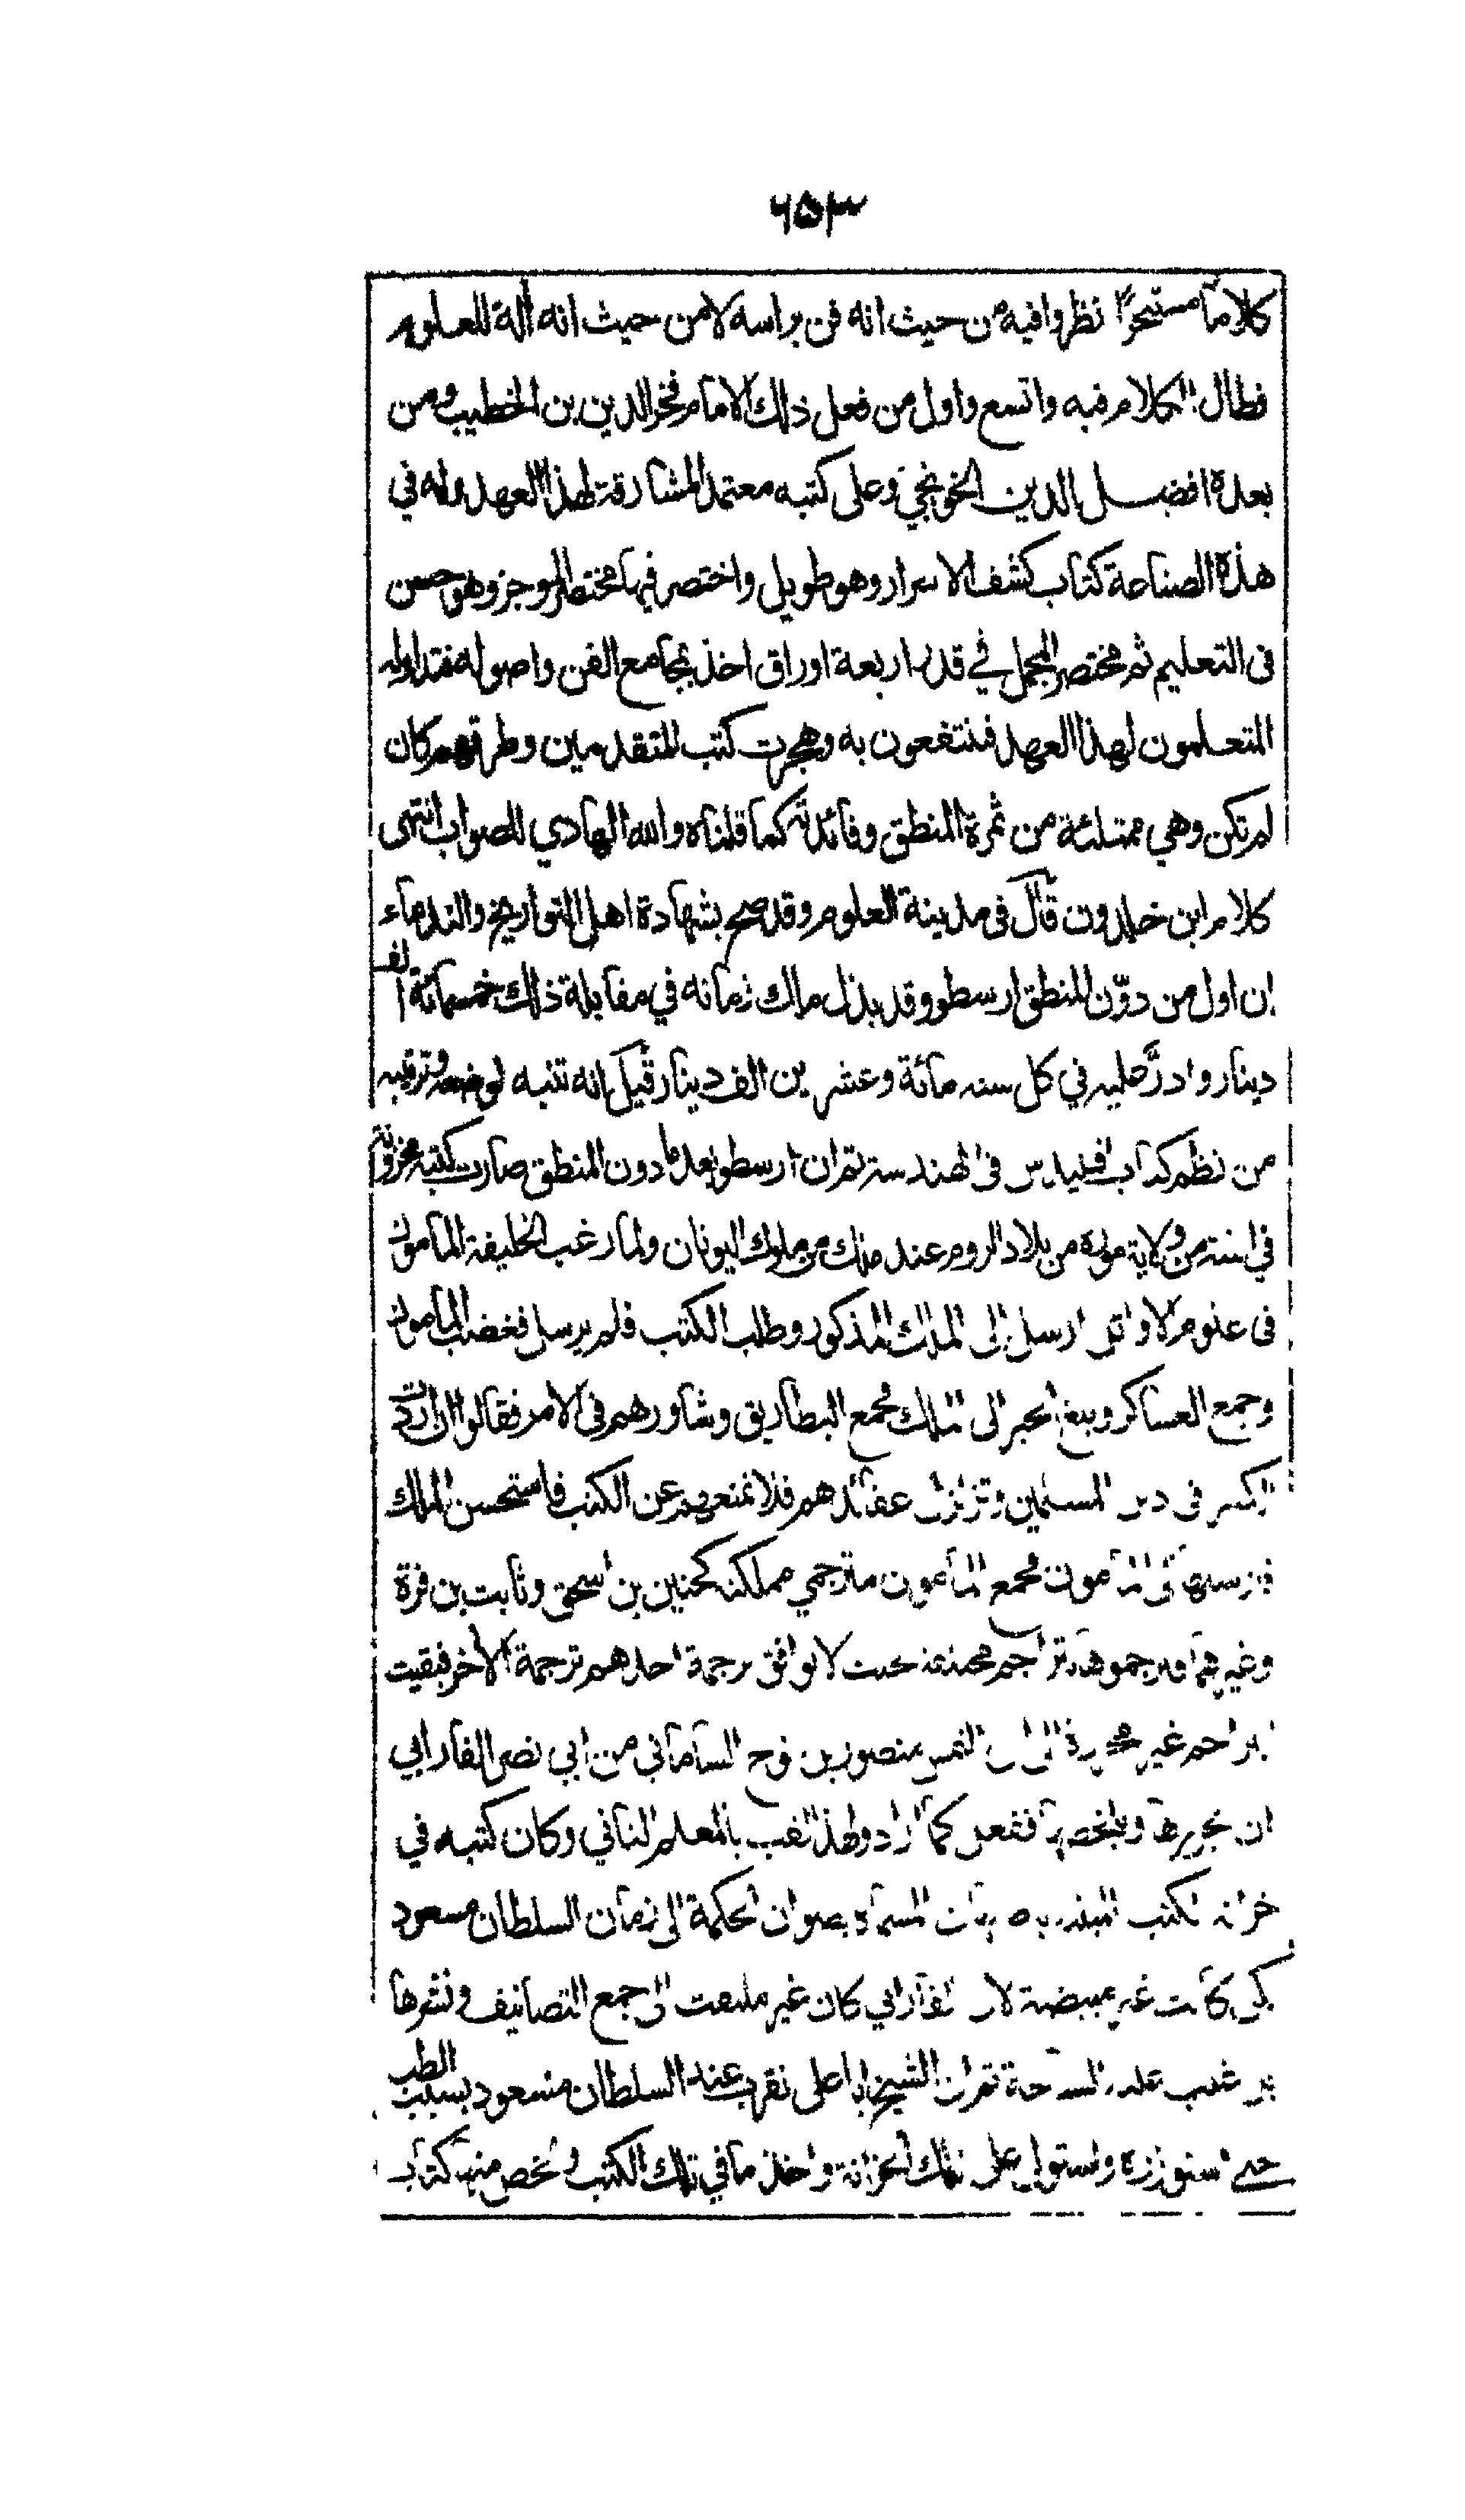 ۶۵۳
كلاما مستبحرا نظروا فيه من حيث انه فن براسه لا من حيث انه الة للعلوم
فطال الكلام فيه واتسع واول من فعل ذلك الامام فخر الدين بن الخطيب ومن
بعده افضل الدين الخونجي وعلى كتبه معتمد المشارقة لهذا العهد وله في
هذه الصناعة كتاب كشف الاسرار وهو طويل واختصر فيها مختصر الموجز وهو حسن
في التعليم ثم مختصر الجمل في قدر اربعة اوراق اخذ بمجامع الفن واصوله فتداوله
المتعلمون لهذا العهد فينتفعون به وهجرت كتب المتقدمين وطرقهم كان
لم تكن وهي ممتلئة من ثمرة المنطق وفائدته كما قلناه والله الهادي للصواب انتهى
كلام ابن خلدون قال في مدينة العلوم وقد صح بشهادة اهل التواريخ والقدماء
ان اول من دوّن المنطق ارسطو وقد بذل ملك زمانه في مقابلة ذلك خمسمائة الف
دينار وادرّ عليه في كل سنه مائة وعشرين الف دينار قيل انه تنبه لوضعه وترتيبه
من نظم كتاب اقليدس في الهندسة ثم ان ارسطو بعد ما دون المنطق صارت كتبه مخزونة
في ابنته من ولاية موره من بلاد الروم عند ملك من ملوك اليونان ولما رغب الخليفة المامون
في علوم الاوائل ارسل الى الملك المذكور وطلب الكتب فلم يرسل فغضب المامون
وجمع العساكر وبلغ الخبر الى الملك فجمع البطاريق وشاورهم في الامر فقالوا ان اردت
الكسر في دين المسلمين وتزلزل عقائدهم فلا تمنعهم عن الكتب فاستحسن الملك
فارسلها الى المامون فجمع المامون مترجمي مملكته كحنين بن اسحق وثابت بن قرة
وغيرهما فترجموها بتراجم مختلفة بحيث لا يوافق ترجمة احدهم ترجمة الاخر فبقيت
التراجم غير محررة الى ان التمس منصور بن نوح الساماني من ابي نصر الفارابي
ان يحررها ويلخصها ففعل كما اراد ولهذا لقب بالمعلم الثاني وكان كتبه في
خزانة الكتب المبنية باصبهان المسماة بصوان الحكمة الى زمان السلطان مسعود
لكن كانت غير مبيضة لان الفارابي كان غير ملتفت الى جمع التصانيف ونشرها
بل غلب عليه السياحة ثم ان الشيخ ابا علي تقرب عند السلطان مسعود بسبب الطب
حتى استوزره واستولى على تلك الخزانة واخذ ما في تلك الكتب ولخص منها كتاب